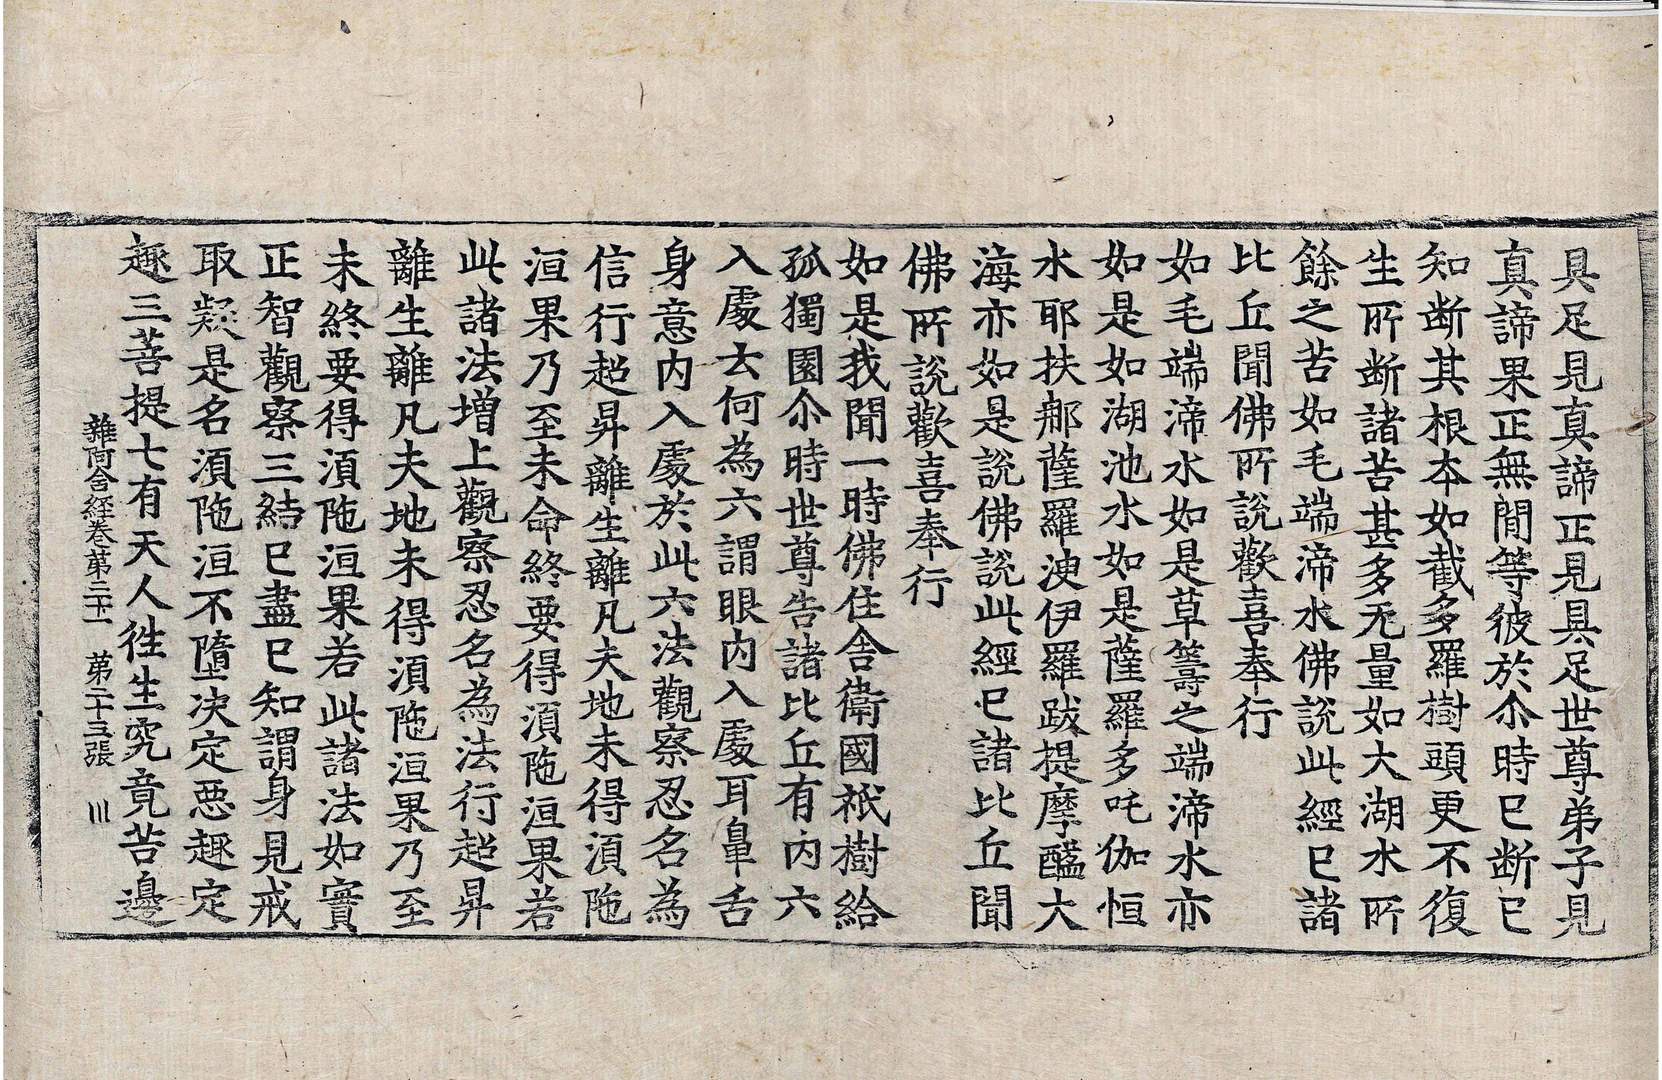 具足見真諦正見具足世尊弟子見
真諦果正無閒等彼於尒時已断已
知断其根夲如截多羅樹頭更不復
生所断諸苦甚多无量如大湖水所
餘之苦如毛端渧水佛說此經已諸
比丘聞佛所說歡喜奉行
如毛端渧水如是草籌之端渧水亦
如是如湖池水如是薩羅多吒伽恒
水耶扶那薩羅㳛伊羅跋提摩醯大
海亦如是說佛說此經已諸比丘聞
佛所說歡喜奉行
如是我聞一時佛住舍衛國祇樹給
孤獨園尒時世尊告諸比丘有內六
入處云何為六謂眼內入處耳鼻舌
身意內入處於此六法觀察忍名為
信行超昇離生離凡夫地未得湏陁
洹果乃至未命終要得湏陁洹果若
此諸法增上觀察忍名為法行超昇
離生離凡夫地未得湏陁洹果乃至
未終要得湏陁洹果若此諸法如實
正智觀察三結已盡已知謂身見戒
取疑是名湏陁洹不墮决定惡趣定
趣三菩提七有天人徃生究竟苦邊
雜阿含経卷第三十一 第二十五張